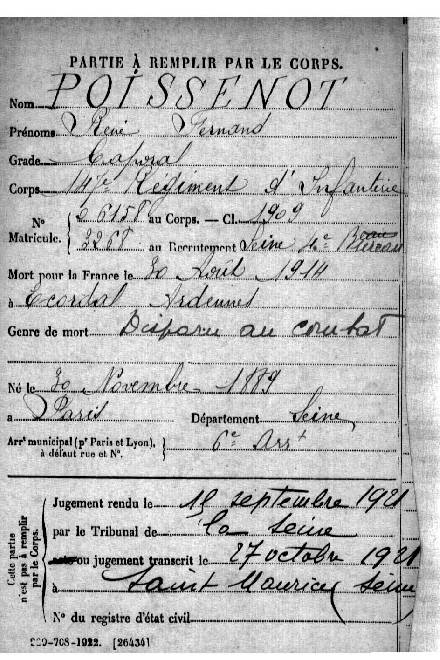 PARTIE À REMPLIR PAR LE CORPS.
Nom POISSENOT
Prénoms René Fernand
Grade Caporal
Corps 147e Régiment d'Infanterie
N° Matricule. { 06158 au Corps. — Cl. 1909
3268 au Recrutement Seine 4e Bureau
Mort pour la France le 30 Août 1914
à Ecordal Ardennes
Genre de mort Disparu au combat
Né le 30 Novembre 1889
a Paris Département Seine
Arrt municipal (pr Paris et Lyon), à défaut rue et N°. } 6e Arrt
Cette partie n'est pas à remplir par le Corps.
Jugement rendu le 15 septembre 1921
par le Tribunal de la Seine
ou jugement transcrit le 27 octobre 1921
à Saint Maurice (Seine)
N° du registre d'état civil
-708-1922. [26434]